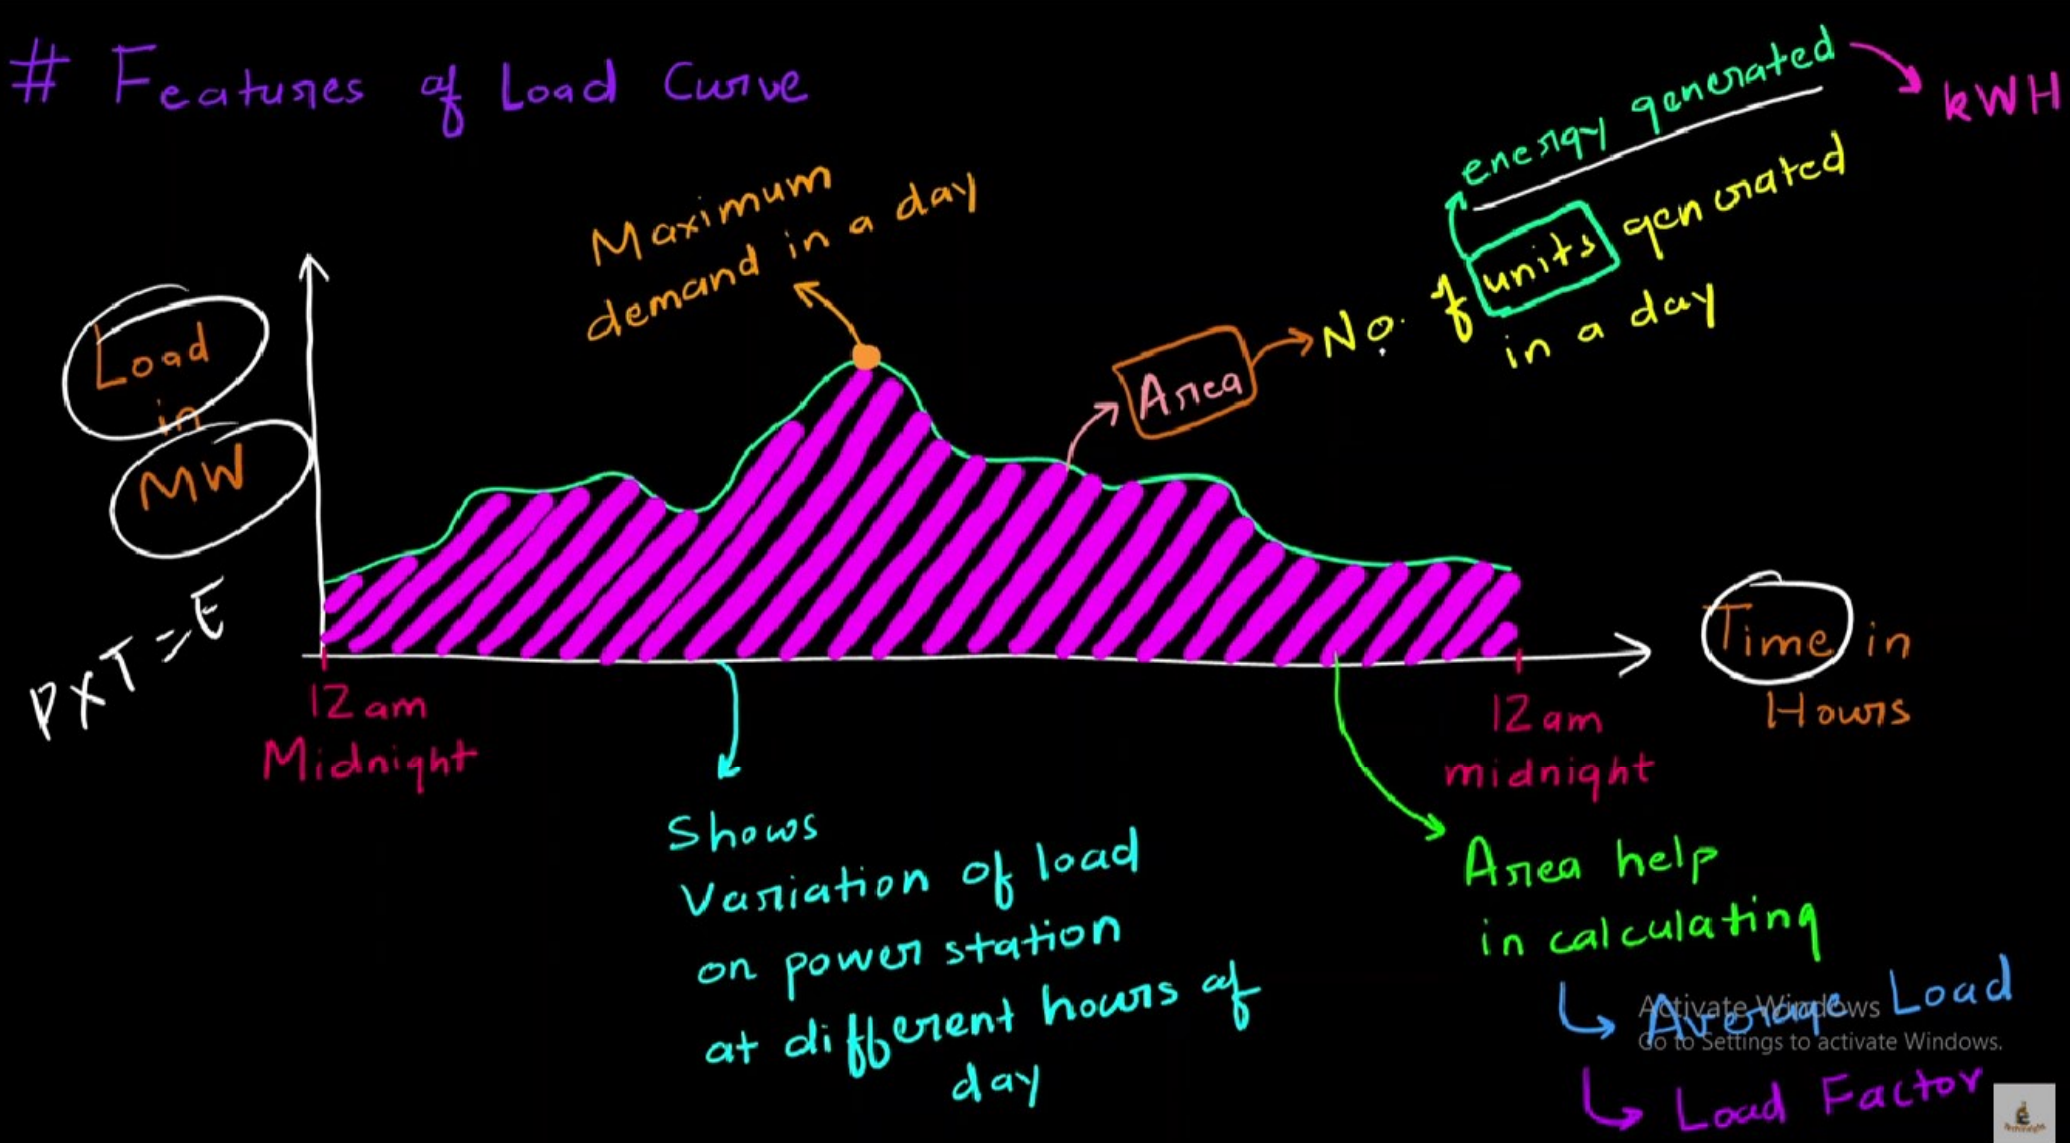 # Features of Load Curve
energy generated
kWH
Maximum
demand in a day
No. of units generated
in a day
Area
Load
in
MW
P x T = E
12am
Midnight
12am
midnight
Time in
Hours
Shows
Variation of load
on power station
at different hours of
day
Area help
in calculating
Average Load
Load Factor
Activate Windows
Go to Settings to activate Windows.